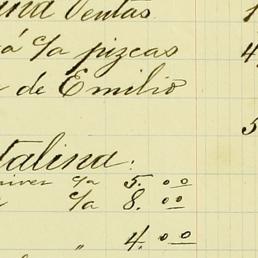 Ventas 1
á c/a pizcas 4
de Emilio
5
talina:
c/a 5.00
c/a 8.00
" 4.00